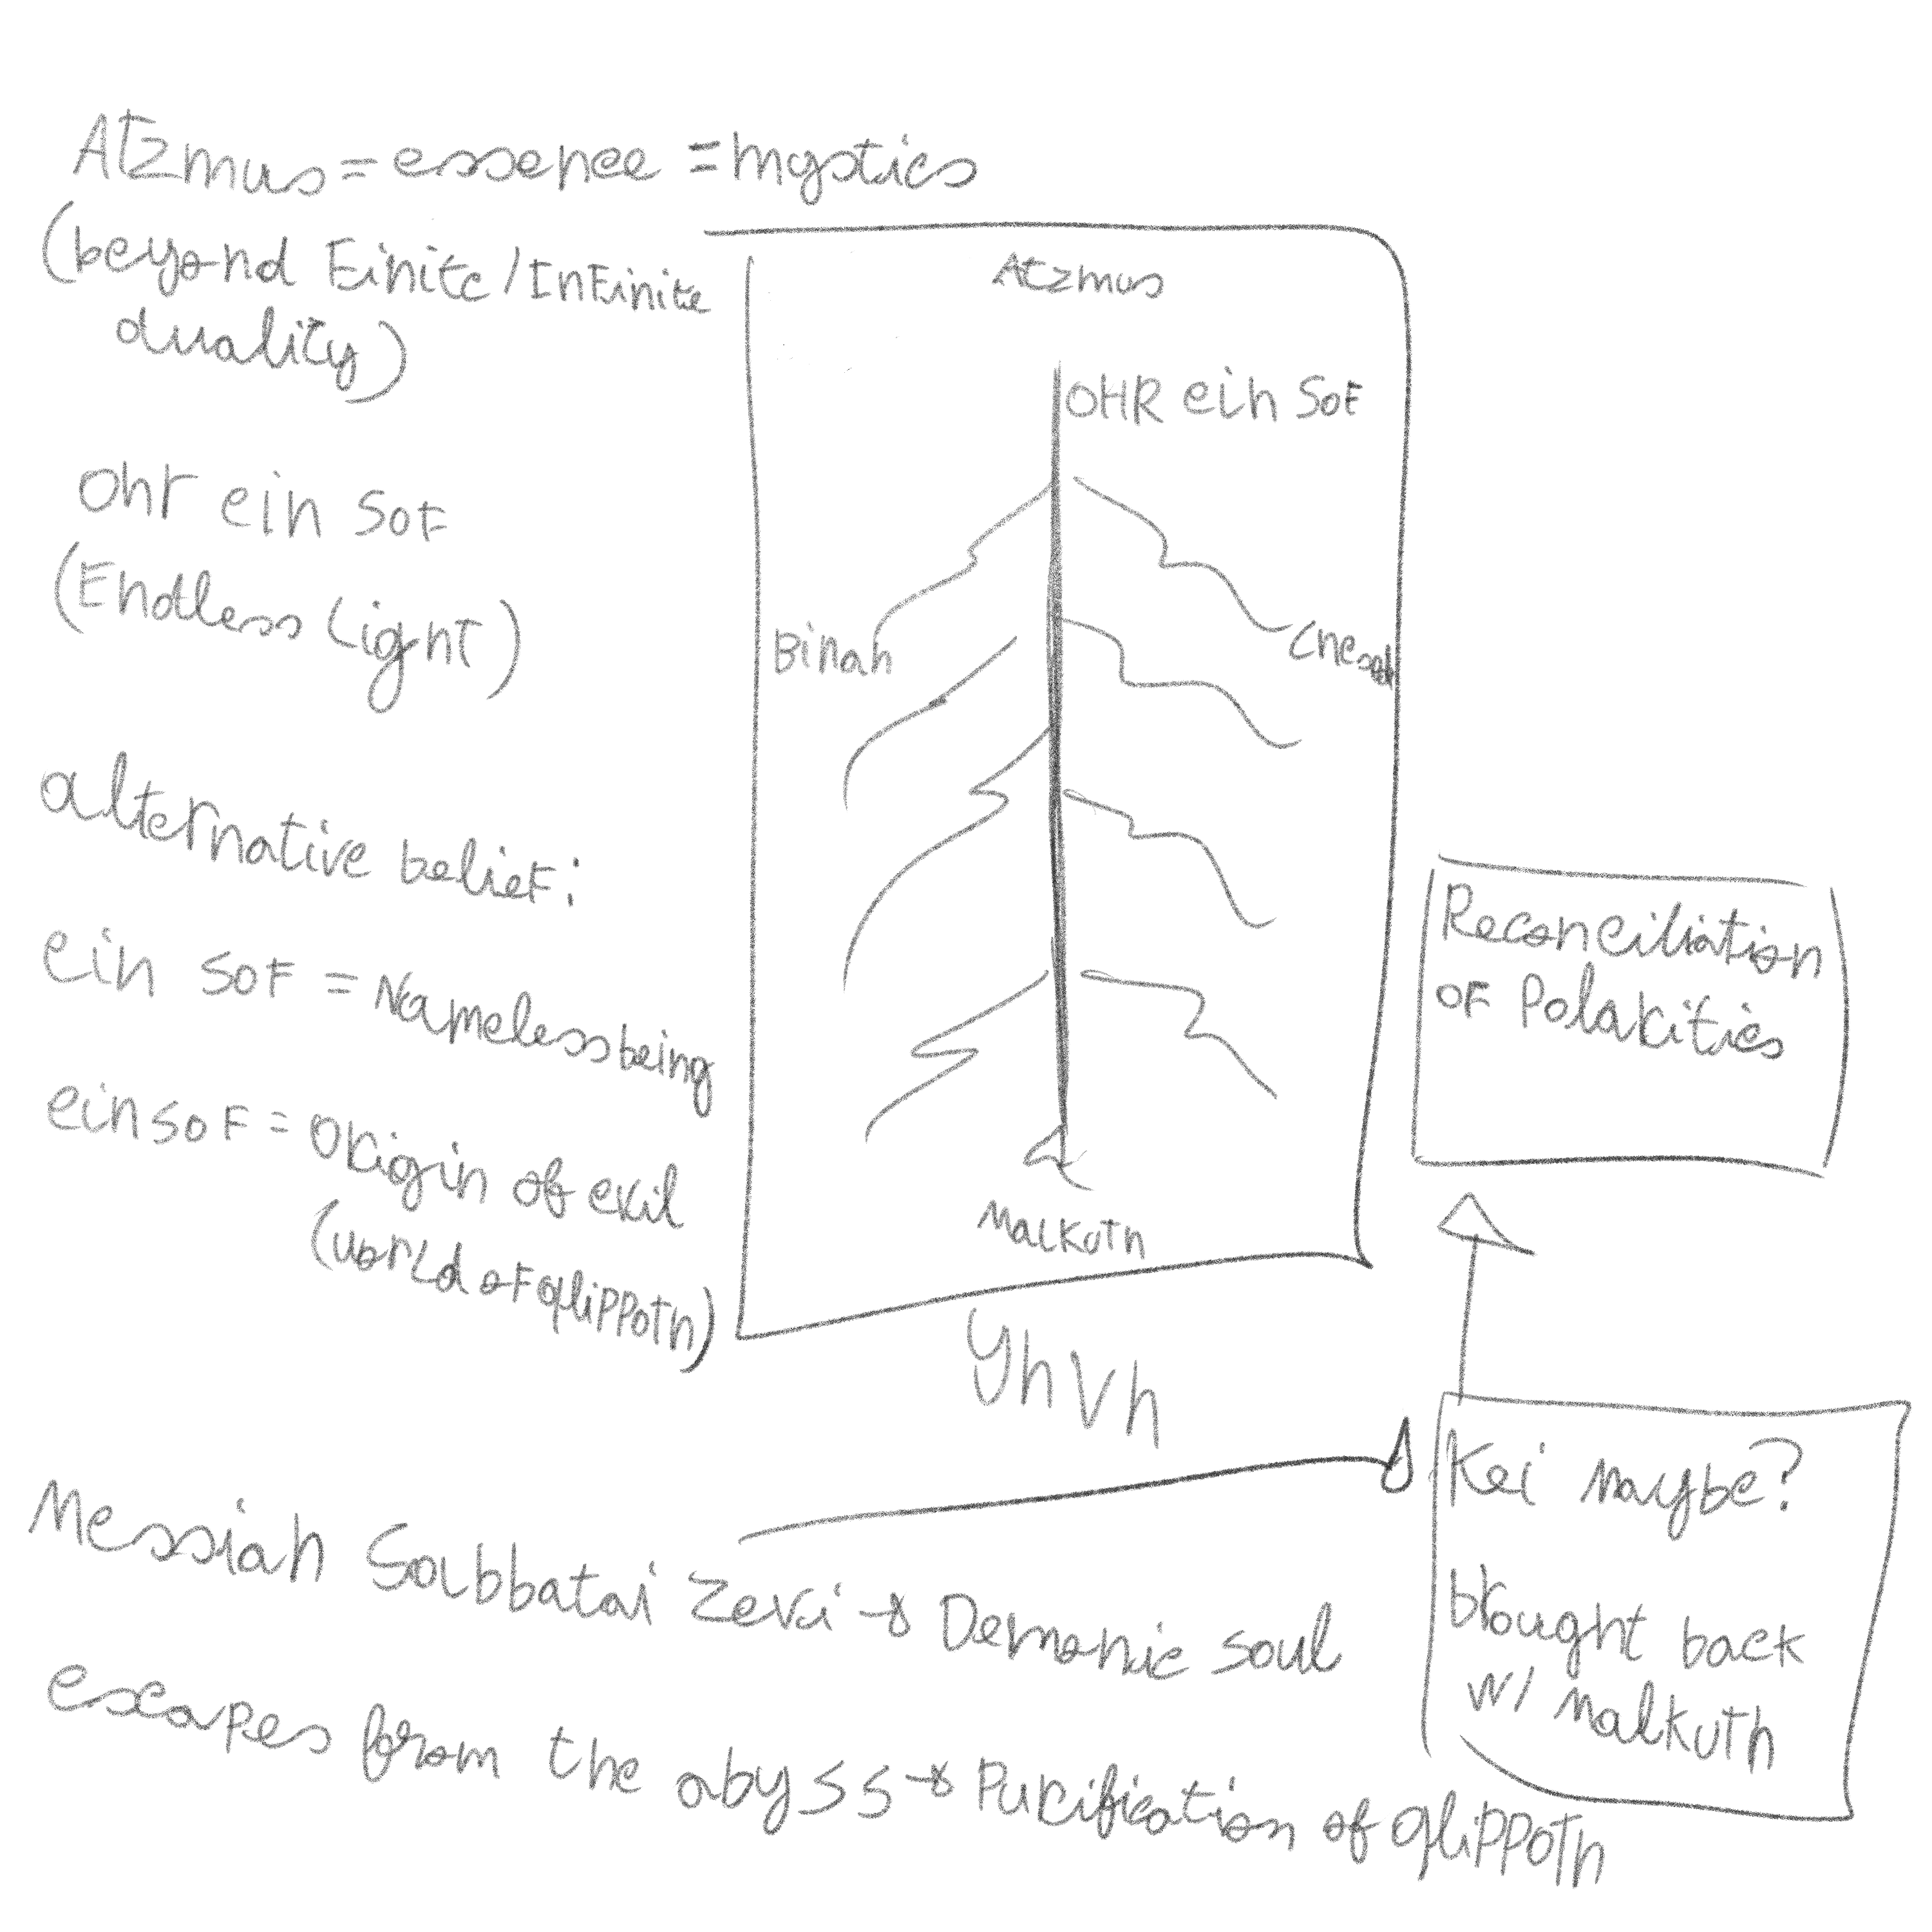 Atzmus = essence = mystics
(beyond Finite / InFinite
duality)
Atzmus
OHR ein SoF
Ohr ein SoF
(Endless Light)
Binah
Chesed
alternative belief:
ein SoF = Nameless being
einsoF = Origin of evil
(world oF qlippoth)
Malkuth
Reconciliation
oF Polarities
yhvh
Kei maybe?
brought back
w/ Malkuth
Messiah Sabbatai Zevi → Demonic soul
escapes from the abyss → Purification of qlippoth